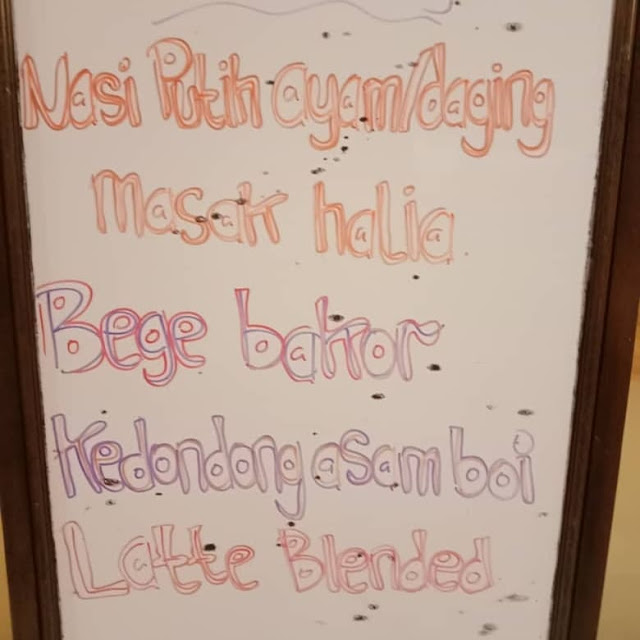 Nasi Putih ayam/daging
masak halia
Bege bakor
Kedondong asam boi
Latte Blended